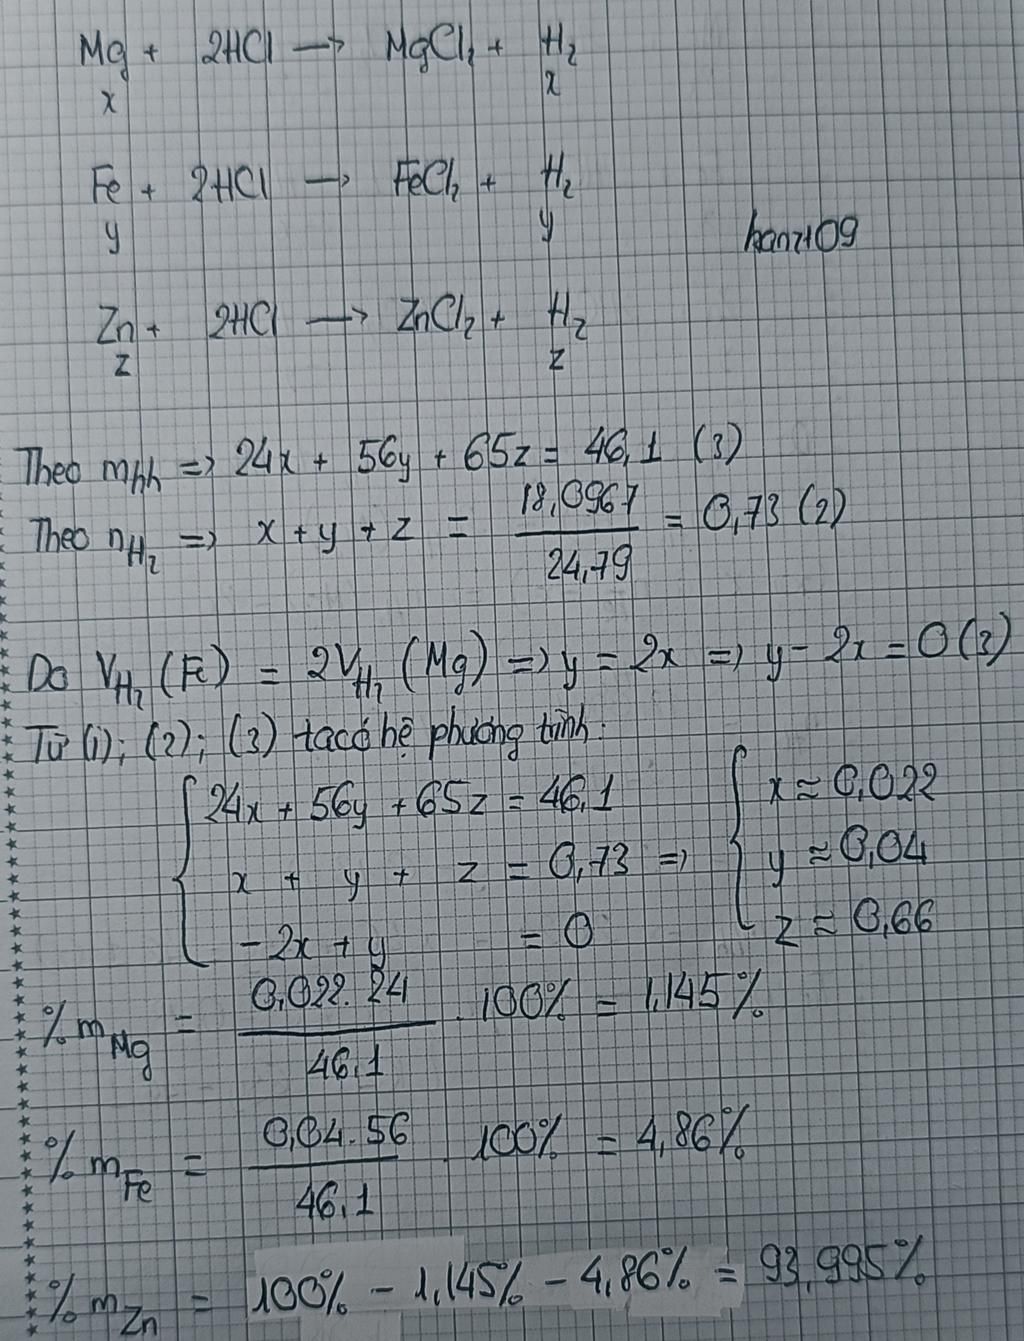 Mg + 2HCl → MgCl₂ + H₂
x x
Fe + 2HCl → FeCl₂ + H₂
y y
hanz109
Zn + 2HCl → ZnCl₂ + H₂
z z
Theo mhh => 24x + 56y + 65z = 46,1 (3)
Theo nH₂ => x + y + z = 18,0967 / 24,79 = 0,73 (2)
Do VH₂ (Fe) = 2VH₂ (Mg) => y = 2x => y - 2x = 0 (3)
Từ (1); (2); (3) ta có hệ phương trình:
24x + 56y + 65z = 46,1
x + y + z = 0,73 =>
-2x + y = 0
x ≈ 0,022
y ≈ 0,04
z ≈ 0,66
%mMg = 0,022.24 / 46,1 . 100% = 1,145%
%mFe = 0,04.56 / 46,1 . 100% = 4,86%
%mZn = 100% - 1,145% - 4,86% = 93,995%